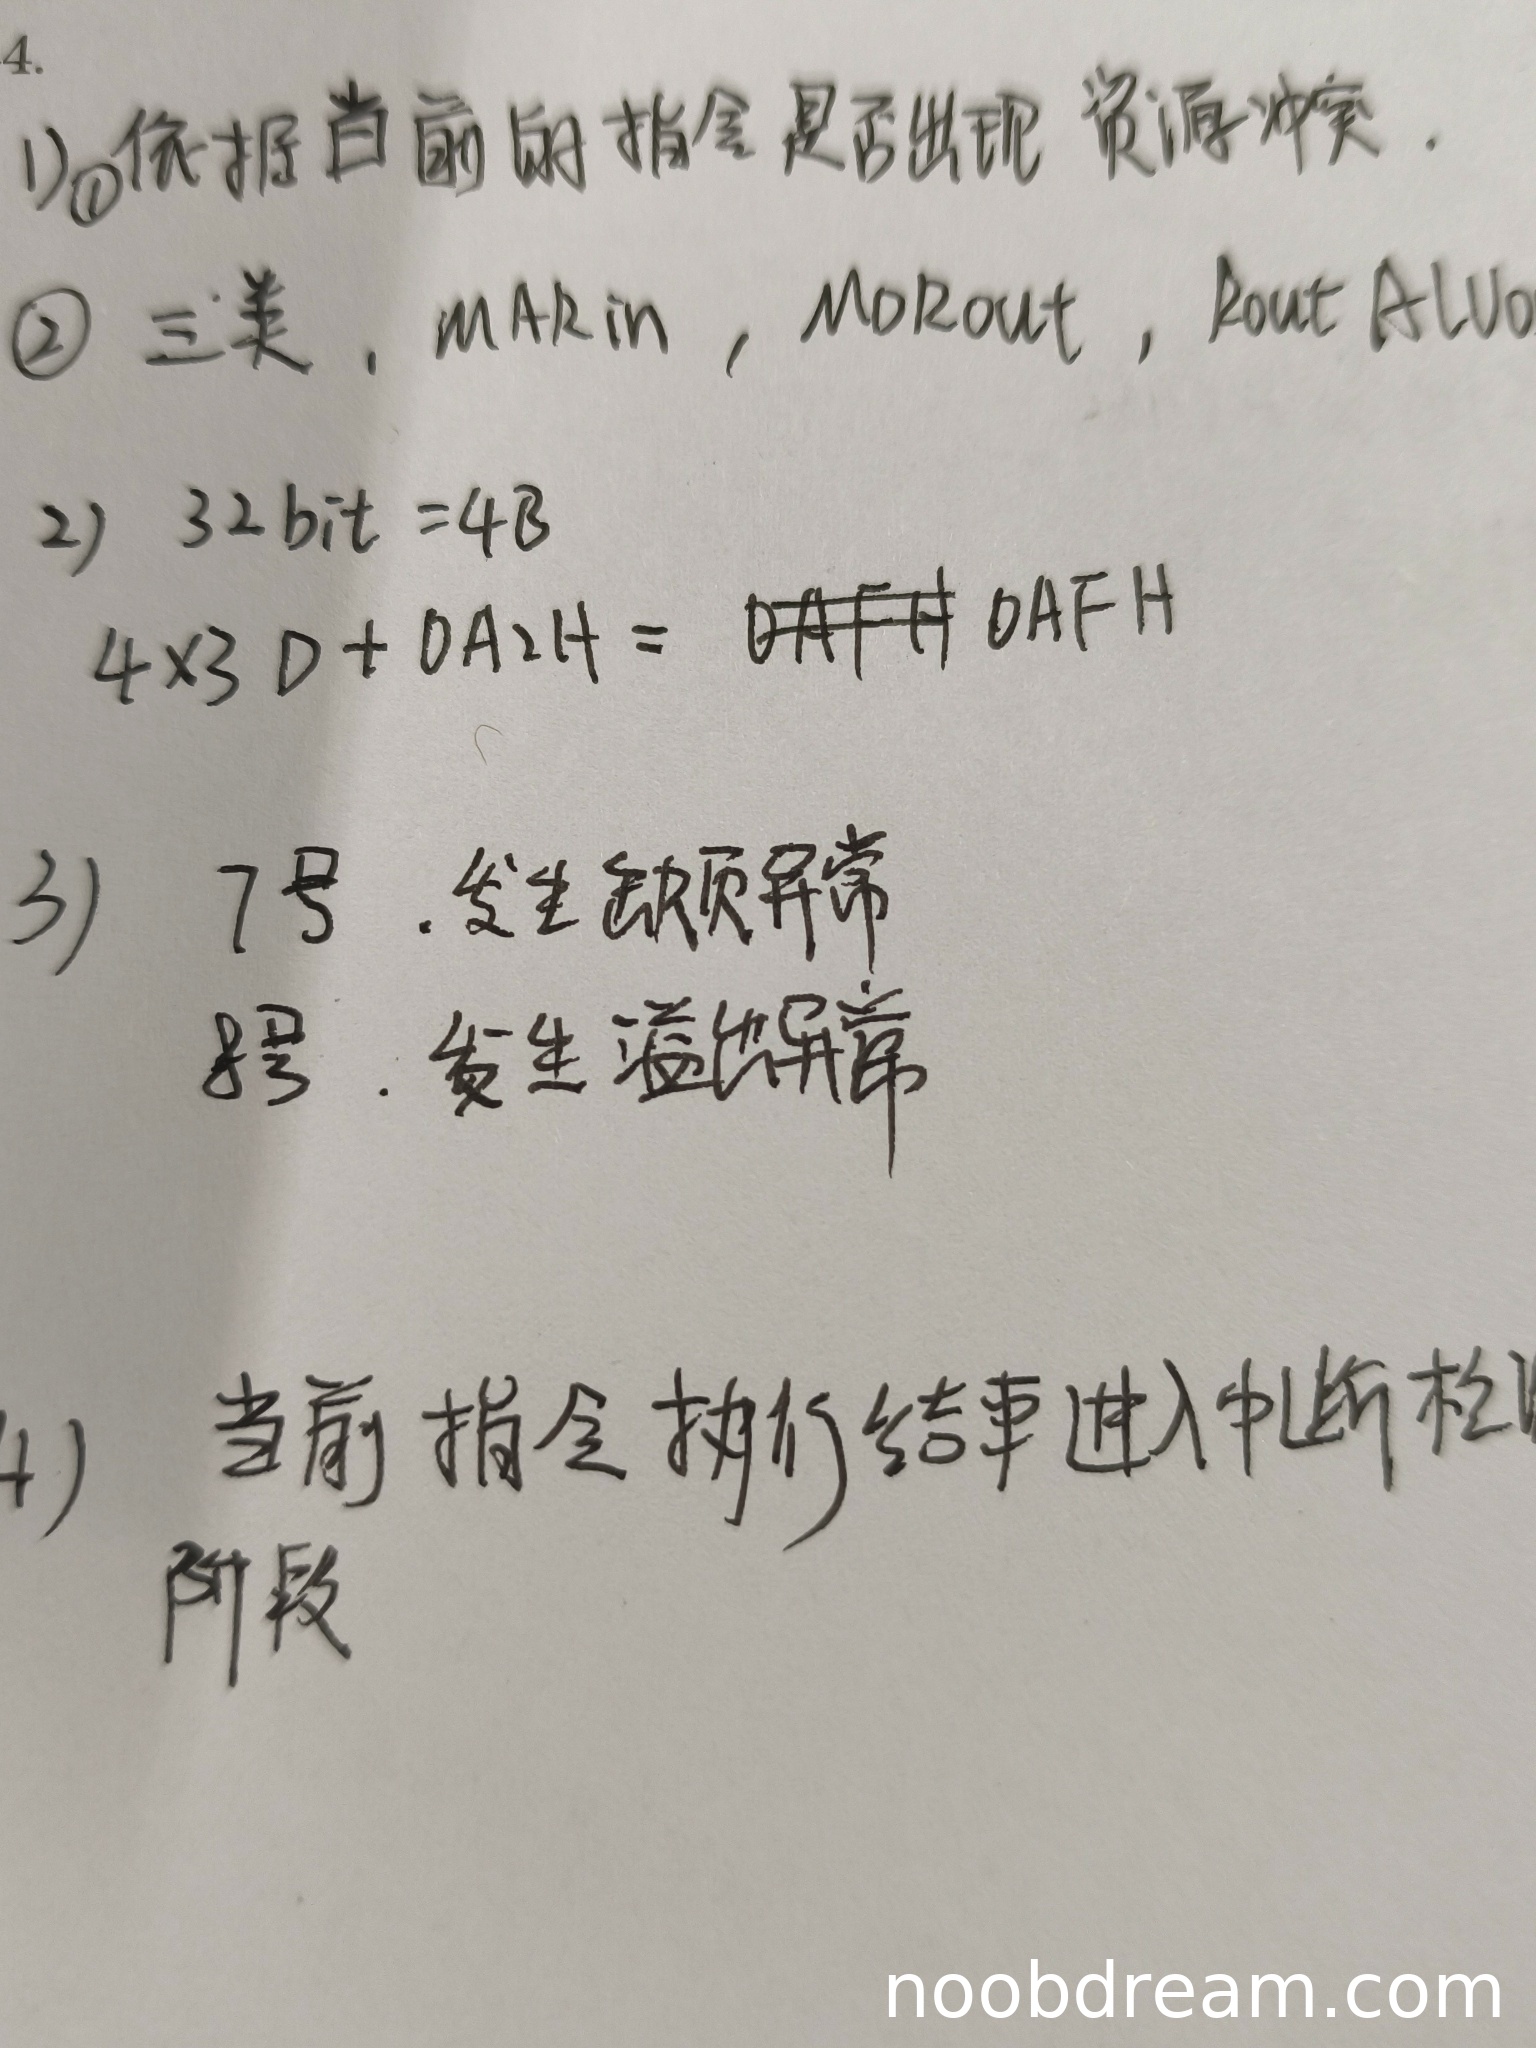 4.
1)①依据当前的指令是否出现资源冲突.
② 三类, MARin, MDRout, Rout ALUo
2) 32bit =4B
4×3D+0A2H= 0AFH 0AFH
3) 7号.发生缺页异常
8号.发生溢出异常
4) 当前指令执行结束进入中断检
阶段
noobdream.com